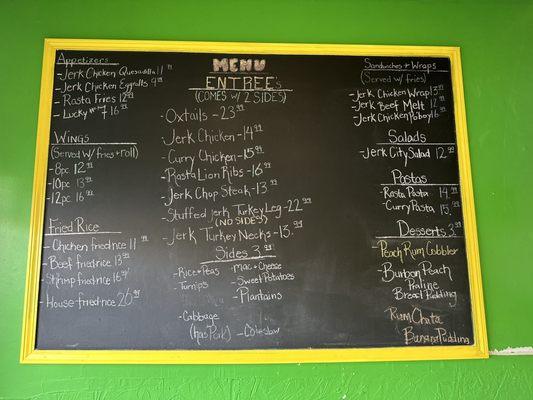 MENU
Appetizers
-Jerk Chicken Quesadilla 11.99
-Jerk Chicken Eggrolls 9.99
-Rasta Fries 12.99
-Lucky #7 16.99
WINGS
(Served w/ fries + roll)
-8pc 12.99
-10pc 13.99
-12pc 16.99
Fried Rice
-Chicken friedrice 11.99
-Beef friedrice 13.99
-Shrimp friedrice 16.99
-House friedrice 20.99
ENTREE's
(COMES W/ 2 SIDES)
-Oxtails - 23.99
-Jerk Chicken - 14.99
-Curry Chicken - 15.99
-Rasta Lion Ribs - 16.99
-Jerk Chop Steak - 13.99
-Stuffed jerk Turkey Leg - 22.99
(NO SIDES)
-Jerk Turkey Necks - 13.99
Sides 3.99
-Rice + Peas
-Turnips
-Cabbage
(has Pork)
-Mac + Cheese
-Sweet Potatoes
-Plantains
-Coleslaw
Sandwiches + Wraps
(Served w/ fries)
-Jerk Chicken Wrap 13.99
-Jerk Beef Melt 12.99
-Jerk Chicken Poboy 16.99
Salads
-Jerk City Salad 12.99
Pastas
-Rasta Pasta 14.99
-Curry Pasta 15.99
Desserts 3.99
-Peach Rum Cobbler
-Burbon Peach
Praline
Bread Pudding
Rum Chata
Banana Pudding